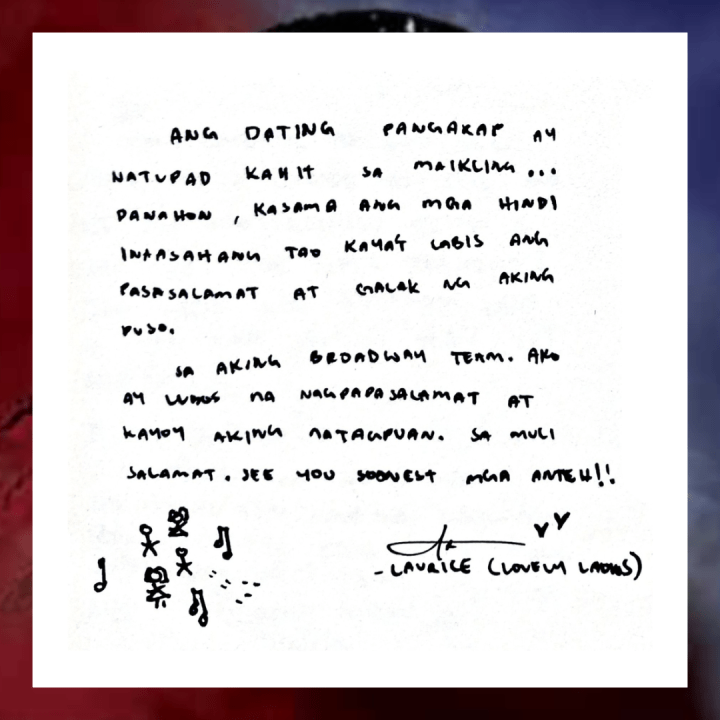 ANG DATING PANGAKAP AY
NATUPAD KAHIT SA MAIKLING...
PANAHON, KASAMA ANG MGA HINDI
INAASAHANG TAO KAYA'T LABIS ANG
PASASALAMAT AT GALAK NG AKING
PUSO.
SA AKING BROADWAY TEAM. AKO
AY LUBOS NA NAGPAPASALAMAT AT
KAYOY AKING NATAGPUAN. SA MULI
SALAMAT. SEE YOU SOONEST MGA ANTEH!!
- LAURICE (LOVELY LADIES)